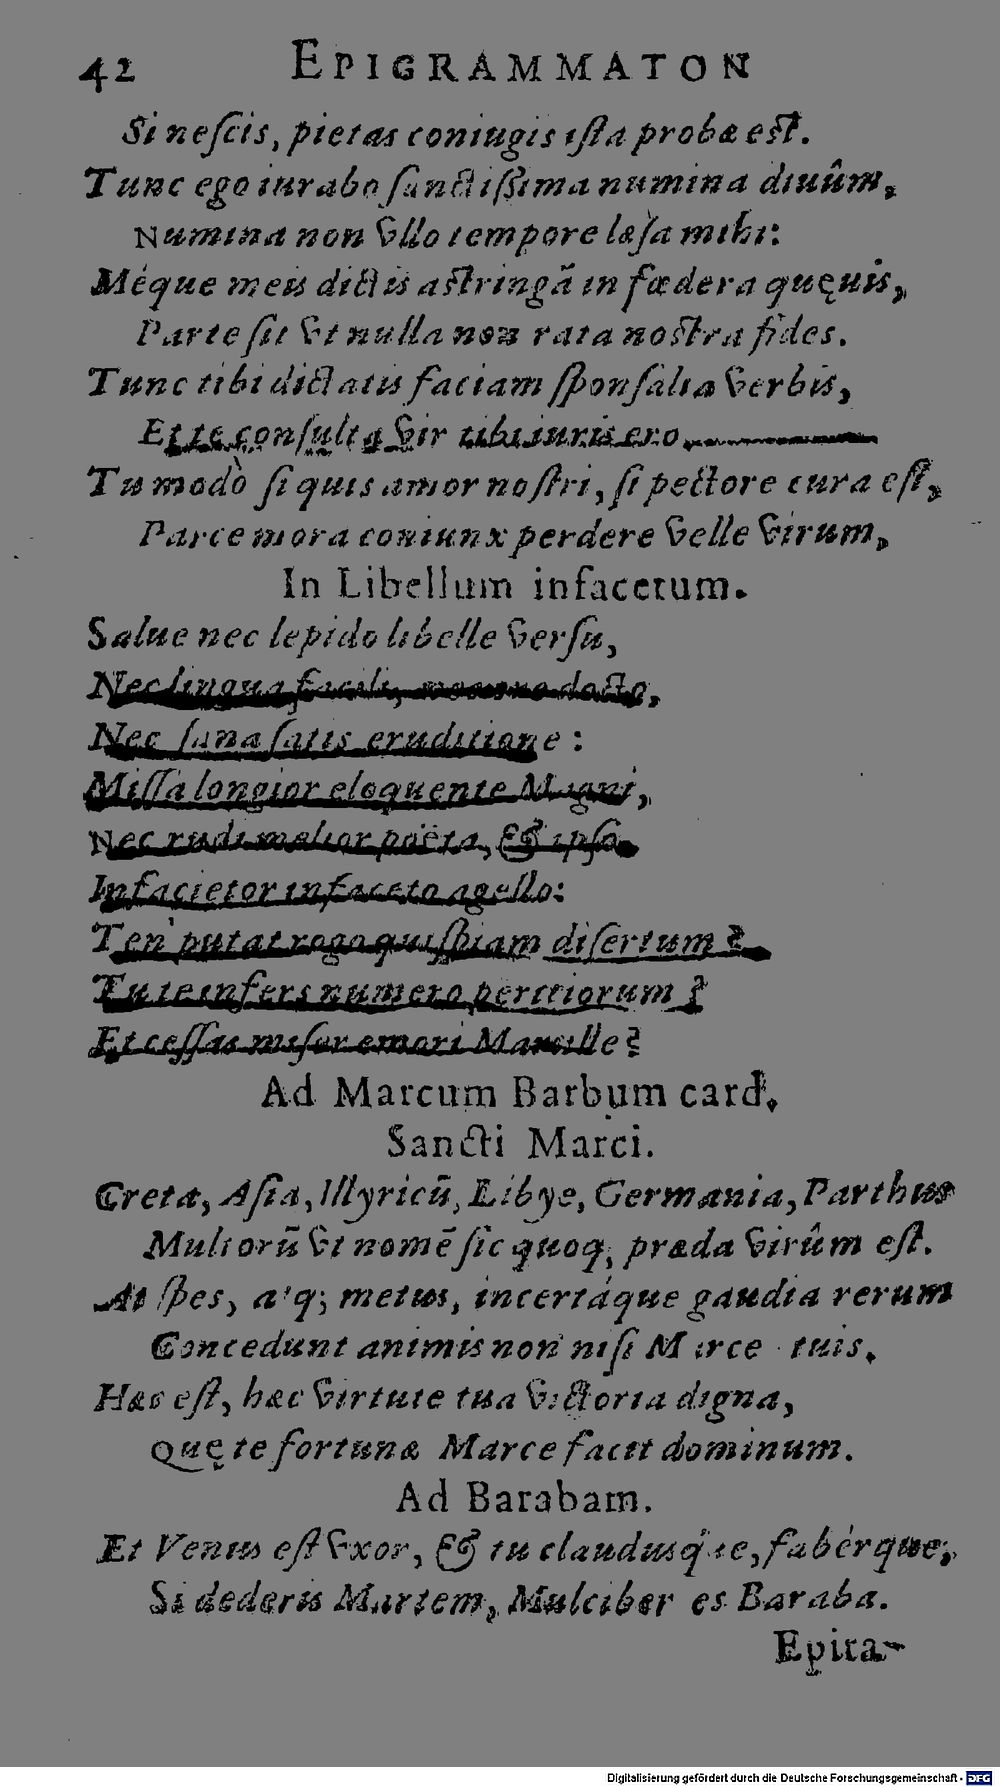 42 EPIGRAMMATON
Si neſcis, pietas coniugis iſta probæ eſt.
Tunc ego iurabo ſanctiſſima numina diuûm,
Numina non vllo tempore læſa mihi:
Méque meis dictis aſtringã in fœdera quęuis,
Parte ſit vt nulla non rata noſtra fides.
Tunc tibi dictatis faciam ſponſalia verbis,
Et te conſulta vir tibi iuris ero.
Tu modò ſi quis amor noſtri, ſi pectore cura eſt,
Parce mora coniunx perdere velle virum,
In Libellum infacetum.
Salue nec lepido libelle verſu,
Nec lingua facili, docto,
Nec ſana ſatis eruditione:
Miſſa longior eloquente Magni,
Nec rudi melior poëta, & ipſo
Infacietor infaceto agello:
Ten' putat rogo quiſpiam diſertum?
Tu te infers numero peritiorum?
Et ceſſas miſer emori Marulle?
Ad Marcum Barbum card.
Sancti Marci.
Creta, Aſia, Illyricũ, Libye, Germania, Parthus
Multorũ vt nomẽ ſic quoq; præda virûm eſt.
At ſpes, atq; metus, incertáque gaudia rerum
Concedunt animis non niſi Marce tuis.
Hæc eſt, hæc virtute tua victoria digna,
Quę te fortunæ Marce facit dominum.
Ad Barabam.
Et Venus eſt vxor, & tu claudusq́ue, fabérque,
Si dederis Martem, Mulciber es Baraba.
Epita-
Digitalisierung gefördert durch die Deutsche Forschungsgemeinschaft - DFG